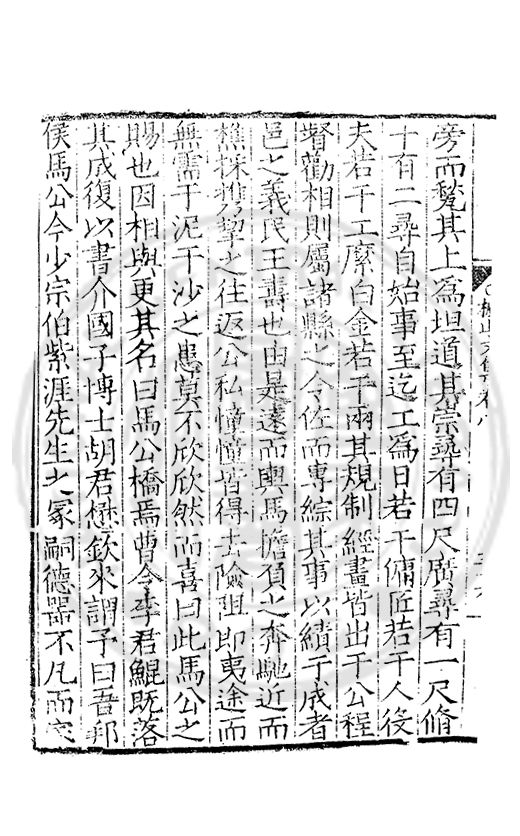 旁而甃其上為坦道其崇尋有四尺廣尋有一尺脩
十有二尋自始事至迄工為日若干傭匠若干人役
夫若干工縻白金若干兩其規制經畫皆出于公程
督勸相則屬諸縣之令佐而專綜其事以績于成者
邑之義民王壽也由是遠而輿馬憺負之奔馳近而
樵採携挈之往返公私憧憧皆得去險阻即夷途而
無需于泥于沙之患莫不欣欣然而喜曰此馬公之
賜也因相與更其名曰馬公橋焉曹令李君鯤既落
其成復以書介國子博士胡君懋欽來謂予曰吾邦
侯馬公今少宗伯紫涯先生之冢嗣德器不凡而